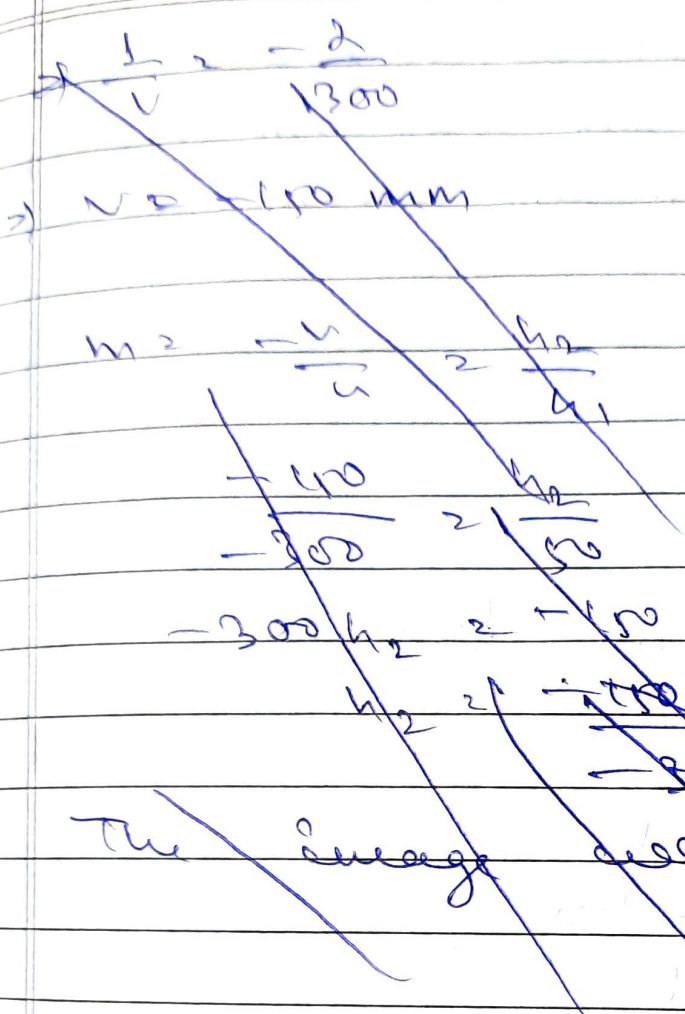 ⇒ 1/v = -2/300
⇒ v = -150 mm
m = -v/u = h2/h1
+150/-300 = h2/50
-300 h2 = +150
h2 =
The image